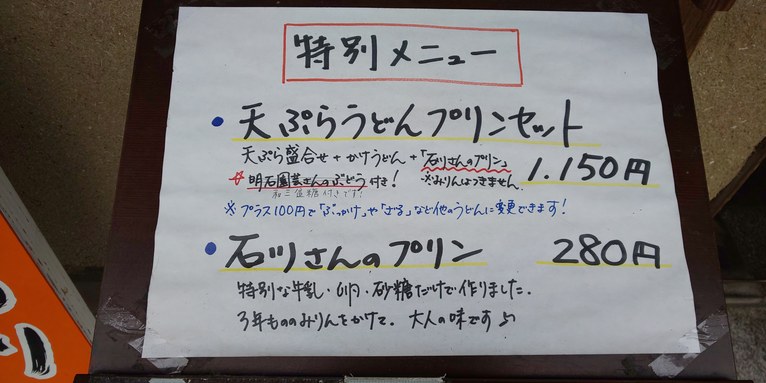 特別メニュー
・天ぷらうどんプリンセット
天ぷら盛合せ+かけうどん+「石川さんのプリン」 1.150円
☆明石園芸さんのぶどう付き! ※みりんはつきません。
和三盆糖付きです!
※プラス100円で「ぶっかけ」や「ざる」など他のうどんに変更できます!
・石川さんのプリン 280円
特別な牛乳・卵・砂糖だけで作りました。
3年もののみりんをかけて。大人の味です♪